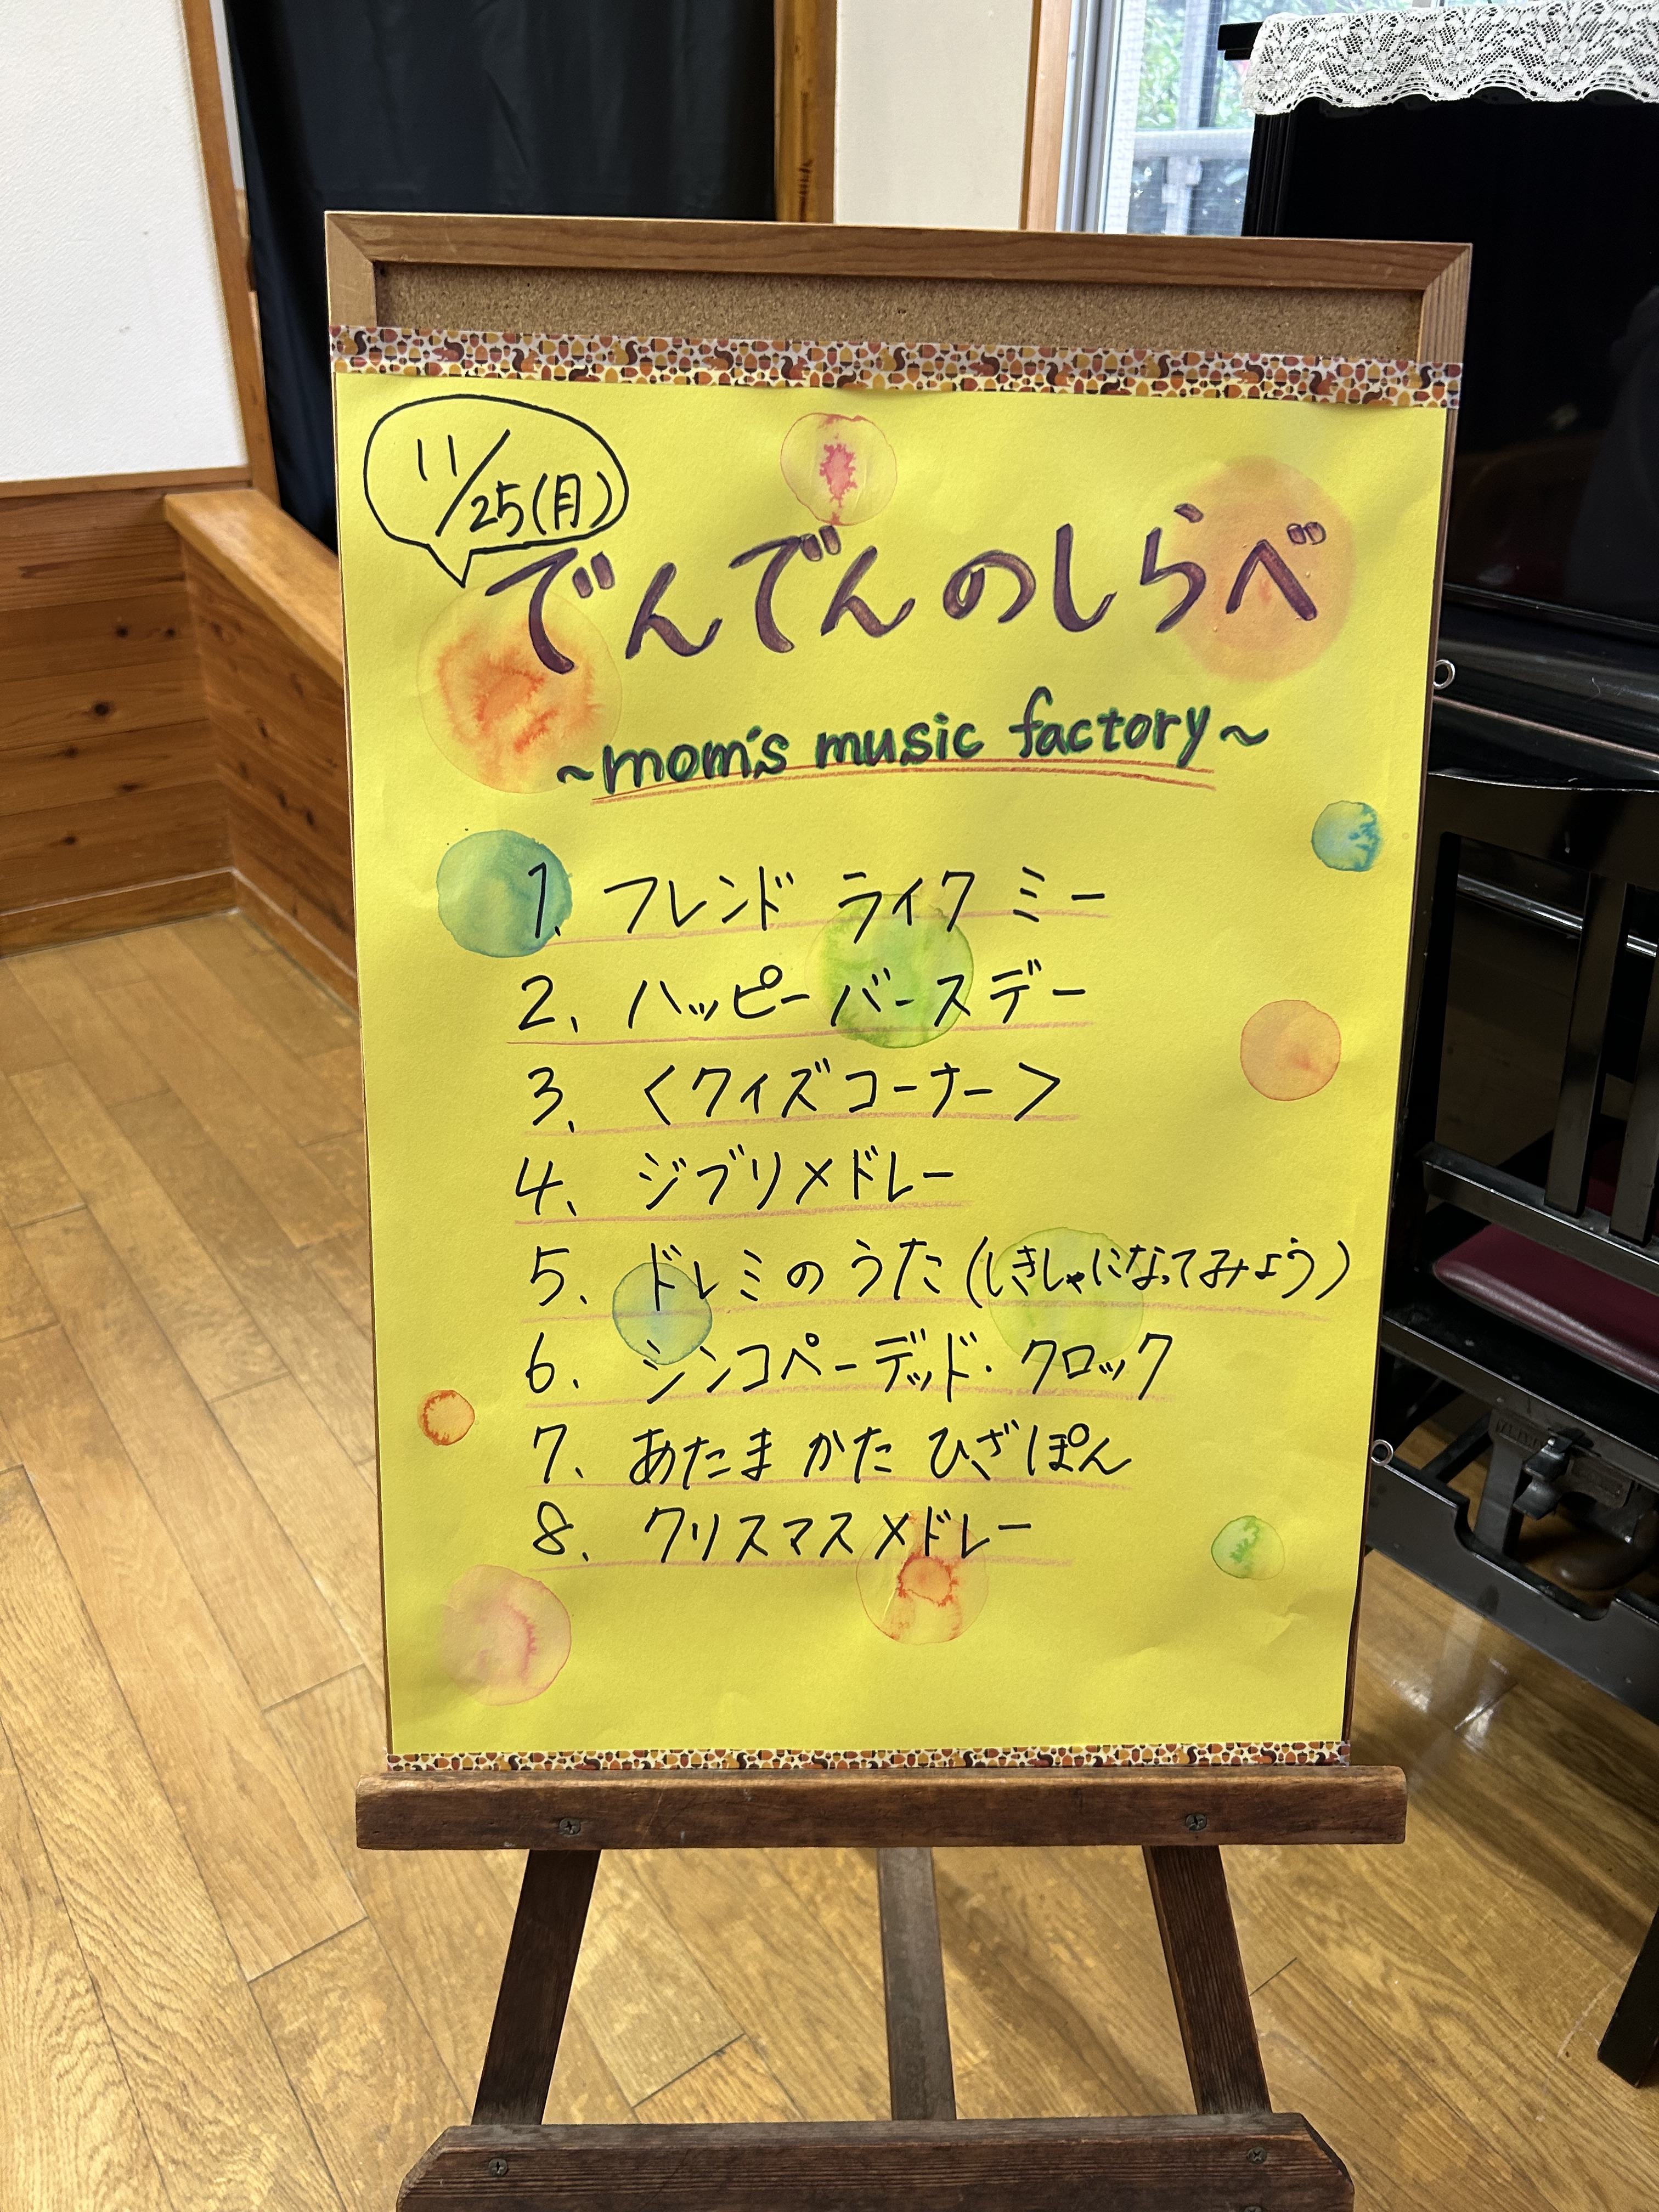 11/25(月)
でんでんのしらべ
~mom's music factory~
1. フレンド ライク ミー
2. ハッピーバースデー
3. <クイズコーナー>
4. ジブリメドレー
5. ドレミのうた(しきしゃになってみよう)
6. シンコペーデッド・クロック
7. あたま かた ひざ ぽん
8. クリスマスメドレー